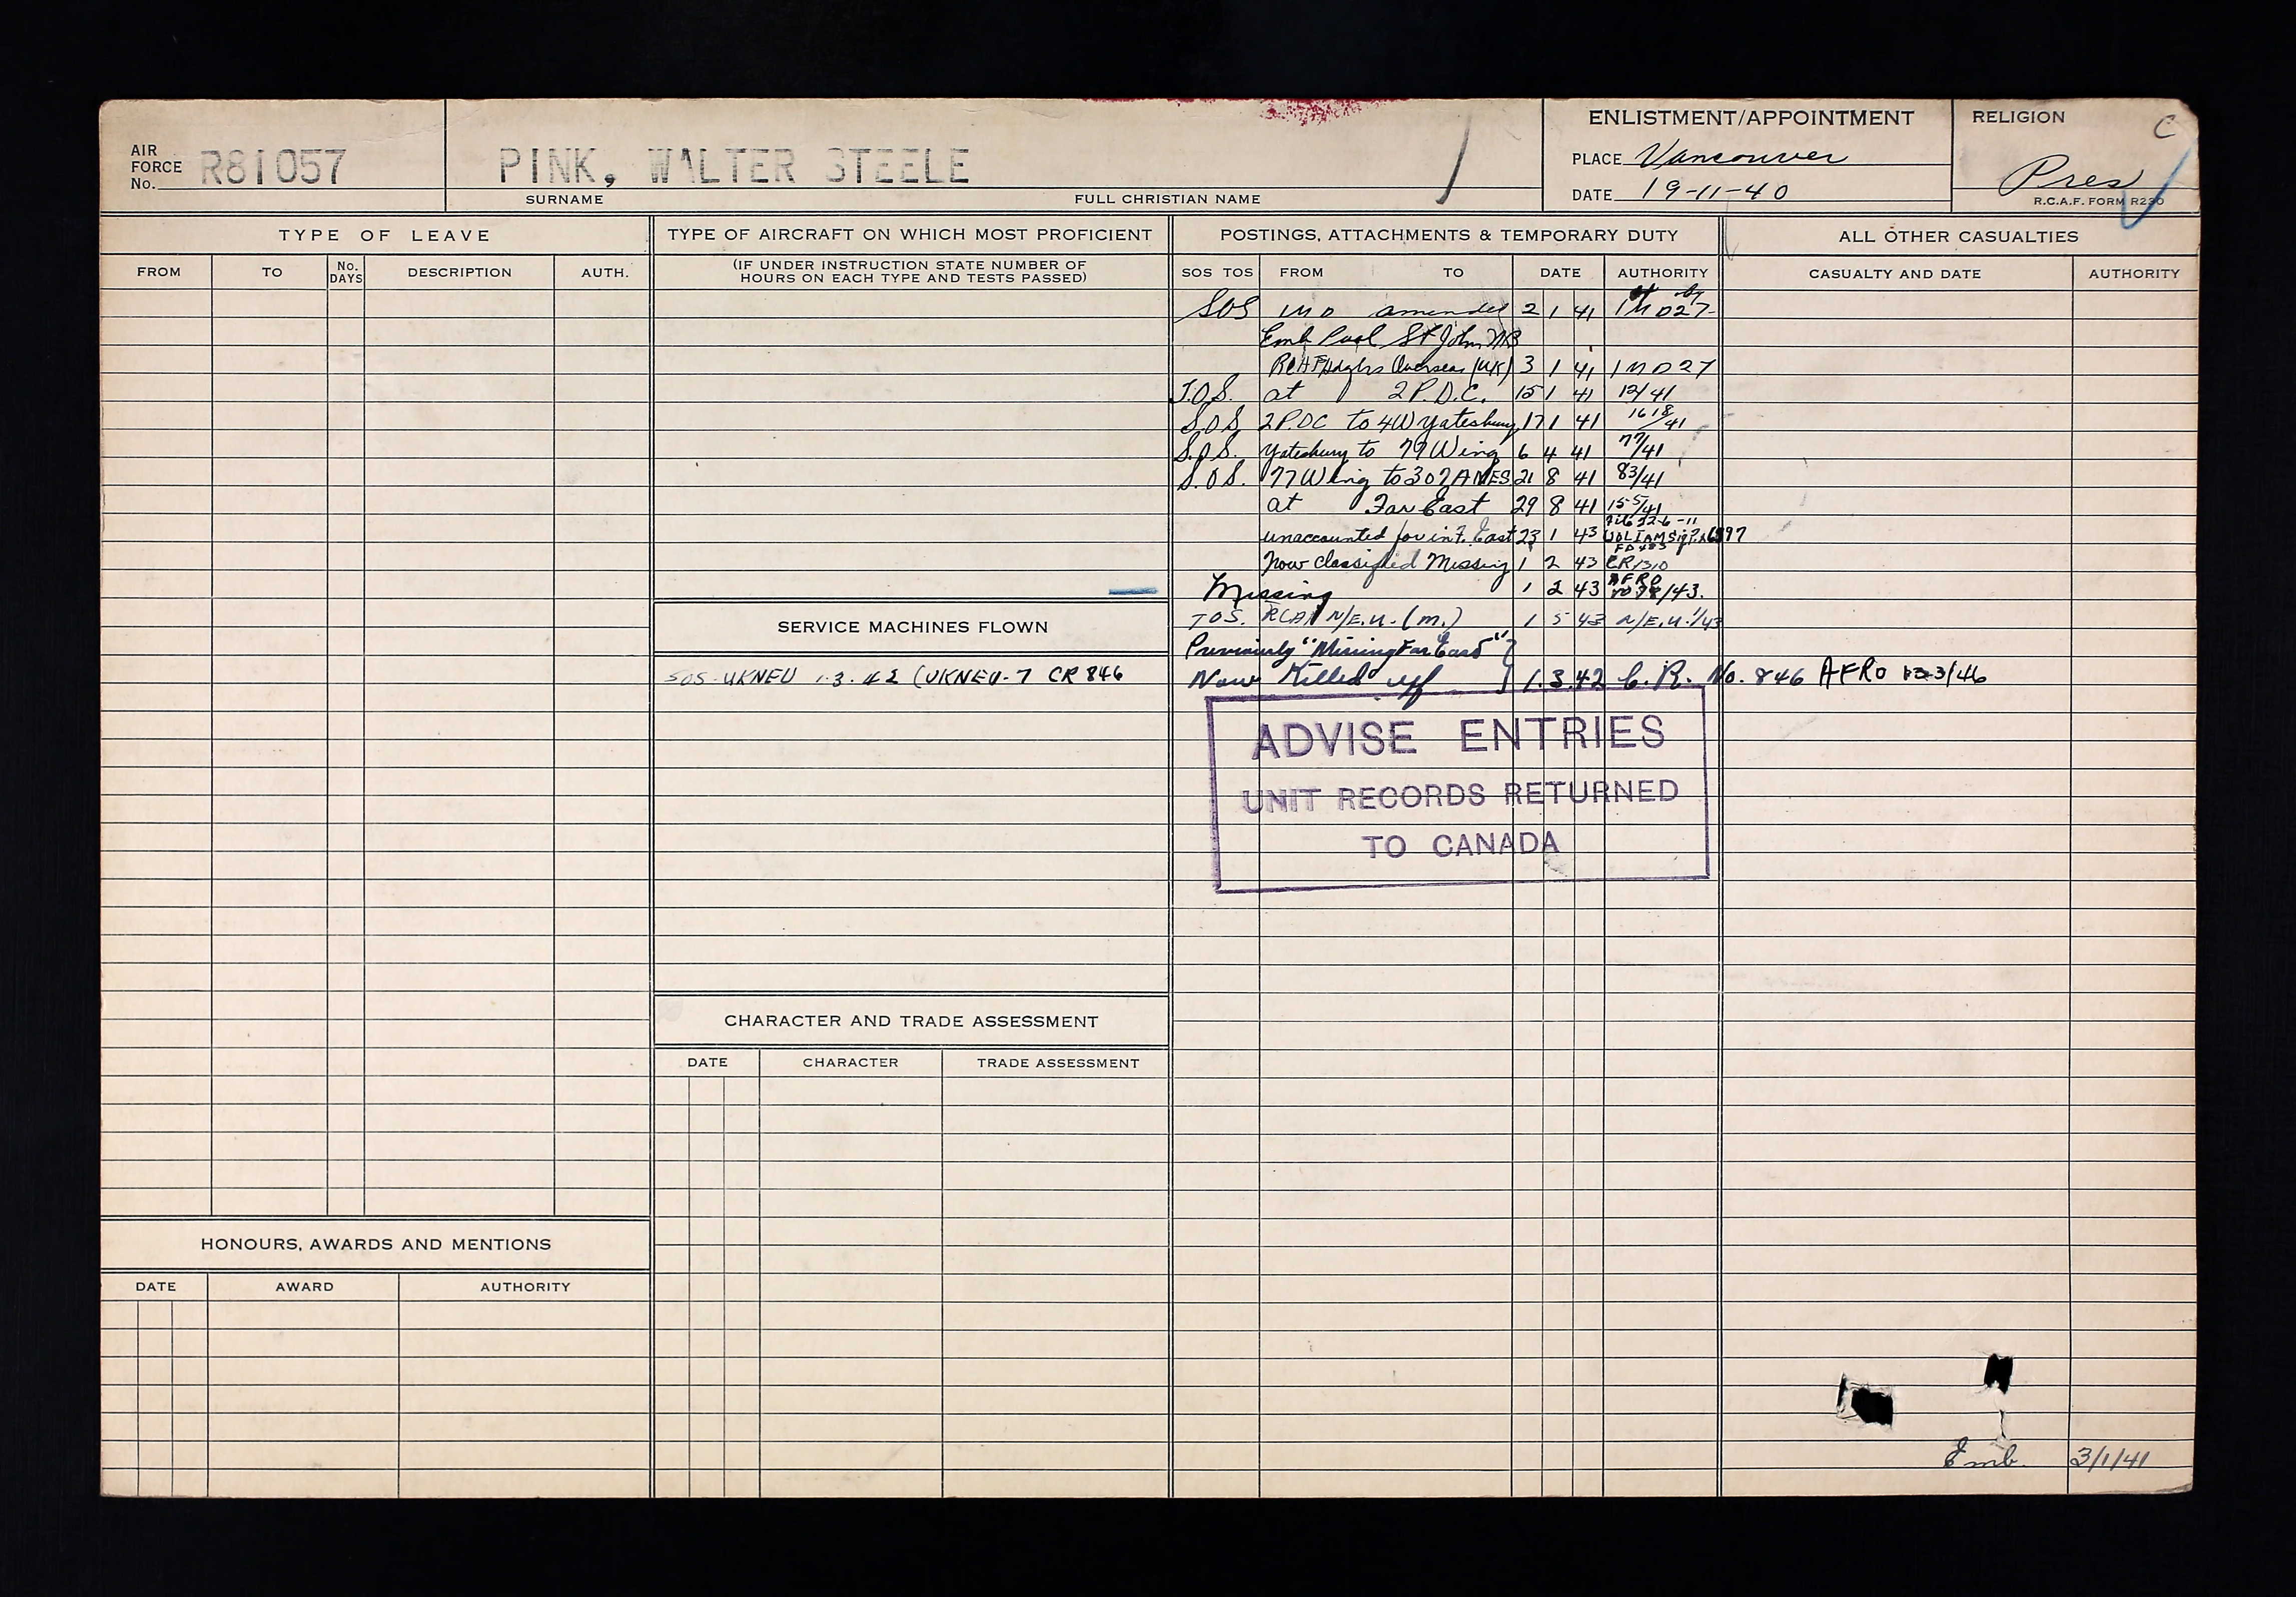 AIR FORCE No. R81057
PINK, WALTER STEELE
SURNAME FULL CHRISTIAN NAME
ENLISTMENT/APPOINTMENT
PLACE Vancouver
DATE 19-11-40
RELIGION C
Pres
R.C.A.F. FORM R230
TYPE OF LEAVE
FROM TO No. DAYS DESCRIPTION AUTH.
TYPE OF AIRCRAFT ON WHICH MOST PROFICIENT
(IF UNDER INSTRUCTION STATE NUMBER OF
HOURS ON EACH TYPE AND TESTS PASSED)
SERVICE MACHINES FLOWN
SOS-UKNEU 1.3.42 (UKNEU-7 CR 846
CHARACTER AND TRADE ASSESSMENT
DATE CHARACTER TRADE ASSESSMENT
HONOURS, AWARDS AND MENTIONS
DATE AWARD AUTHORITY
POSTINGS, ATTACHMENTS & TEMPORARY DUTY
SOS TOS FROM TO DATE AUTHORITY
SOS 1MD amended 2 1 41 1MD27
Emb Pool St John NB
Hdqtrs Overseas (UK) 3 1 41 1MD27
T.O.S. at 2 P.D.C. 15 1 41 12/41
S.O.S. 2P.DC to 4W Yatesbury 17 1 41 1618/41
S.O.S. Yatesbury to 77 Wing 6 4 41 77/41
S.O.S. 77 Wing to 307 AMES 21 8 41 83/41
at Far East 29 8 41 155/41
unaccounted for in F. East 23 1 43
Now classified Missing 1 2 43 CR1310
Missing 1 2 43 AFRO /43.
TOS. RCAF N/E.U.(m.) 1 5 43 N/E.U.1/43
Previously "Missing Far East" }
Now Killed } 1.3.42 C.R. No. 846 AFRO 133/46
ADVISE ENTRIES
UNIT RECORDS RETURNED
TO CANADA
ALL OTHER CASUALTIES
CASUALTY AND DATE AUTHORITY
Emb. 3/1/41